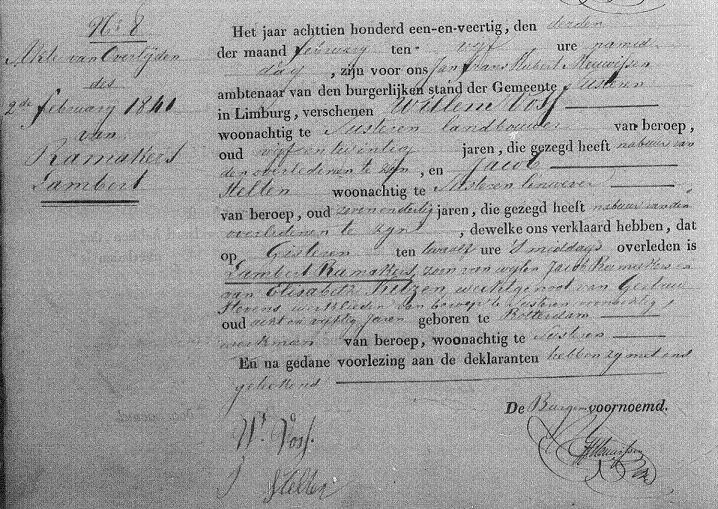 No 8
Akte van Overlijden
des
2de february 1841
van
Ramakers
Lambert
Het jaar achttien honderd een-en-veertig, den derden
der maand february ten vyf ure namid
dag, zijn voor ons Jan Frans Hubert Meuwissen
ambtenaar van den burgerlijken stand der Gemeente Susteren
in Limburg, verschenen Willem Vos
woonachtig te Susteren landbouwer van beroep,
oud vyf en twintig jaren, die gezegd heeft nabuur van
den overledenen te zyn, en Jacob
Stelten woonachtig te Susteren linwever
van beroep, oud zevenendertig jaren, die gezegd heeft nabuur van den
overledenen te zyn, dewelke ons verklaard hebben, dat
op Gisteren ten twaalf ure 's middags overleden is
Lambert Ramakers, zoon van wylen Jacob Ramakers en
van Elisabeth echtgenoot van Gertrud
Stevens, werklieden van beroep te Susteren woonachtig,
oud acht en vyftig jaren geboren te Rotterdam
werkman van beroep, woonachtig te Susteren
En na gedane voorlezing aan de deklaranten hebben zy met ons
geteekend
De Burgem voornoemd.
Wm Voss.
J Stelten